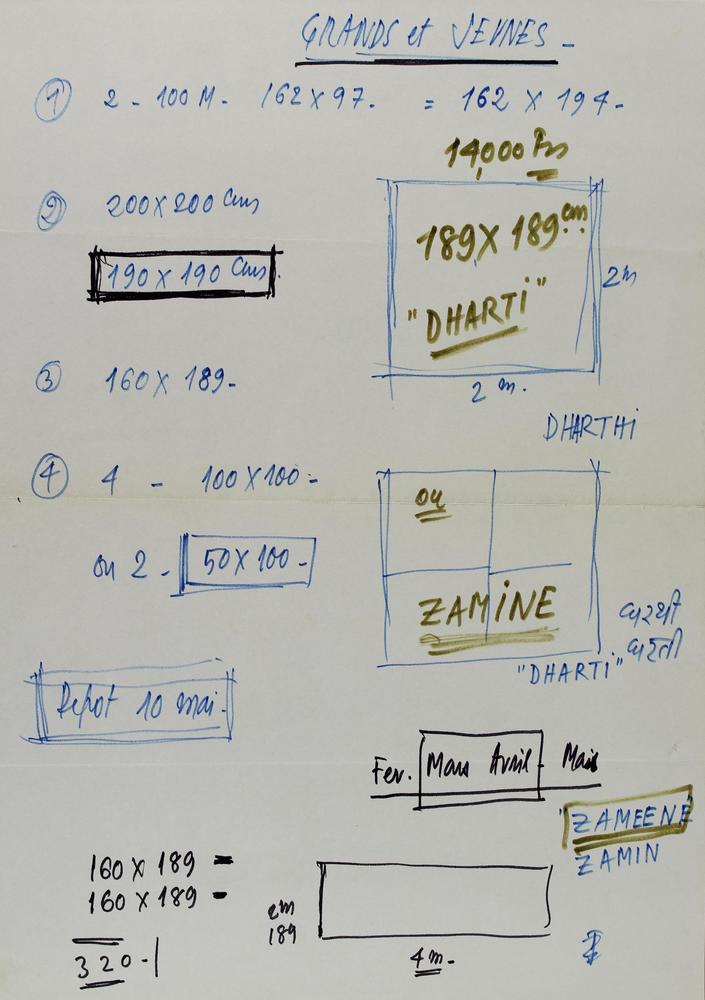 GRANDS et JEUNES -
① 2 - 100 M - 162 X 97. = 162 X 194 -
14,000 Frs
② 200 X 200 Cms
190 X 190 Cms.
189 X 189 cm
"DHARTI"
2m
2 m.
③ 160 X 189 -
DHARTHI
④ 4 - 100 X 100 -
ou
ou 2 - 50 X 100 -
ZAMINE
ધરતી
"DHARTI"
Depot 10 mai -
Fev. Mars Avril - Mais
"ZAMEENE
ZAMIN
160 X 189 =
160 X 189 -
320 -
2m
189
4 m -